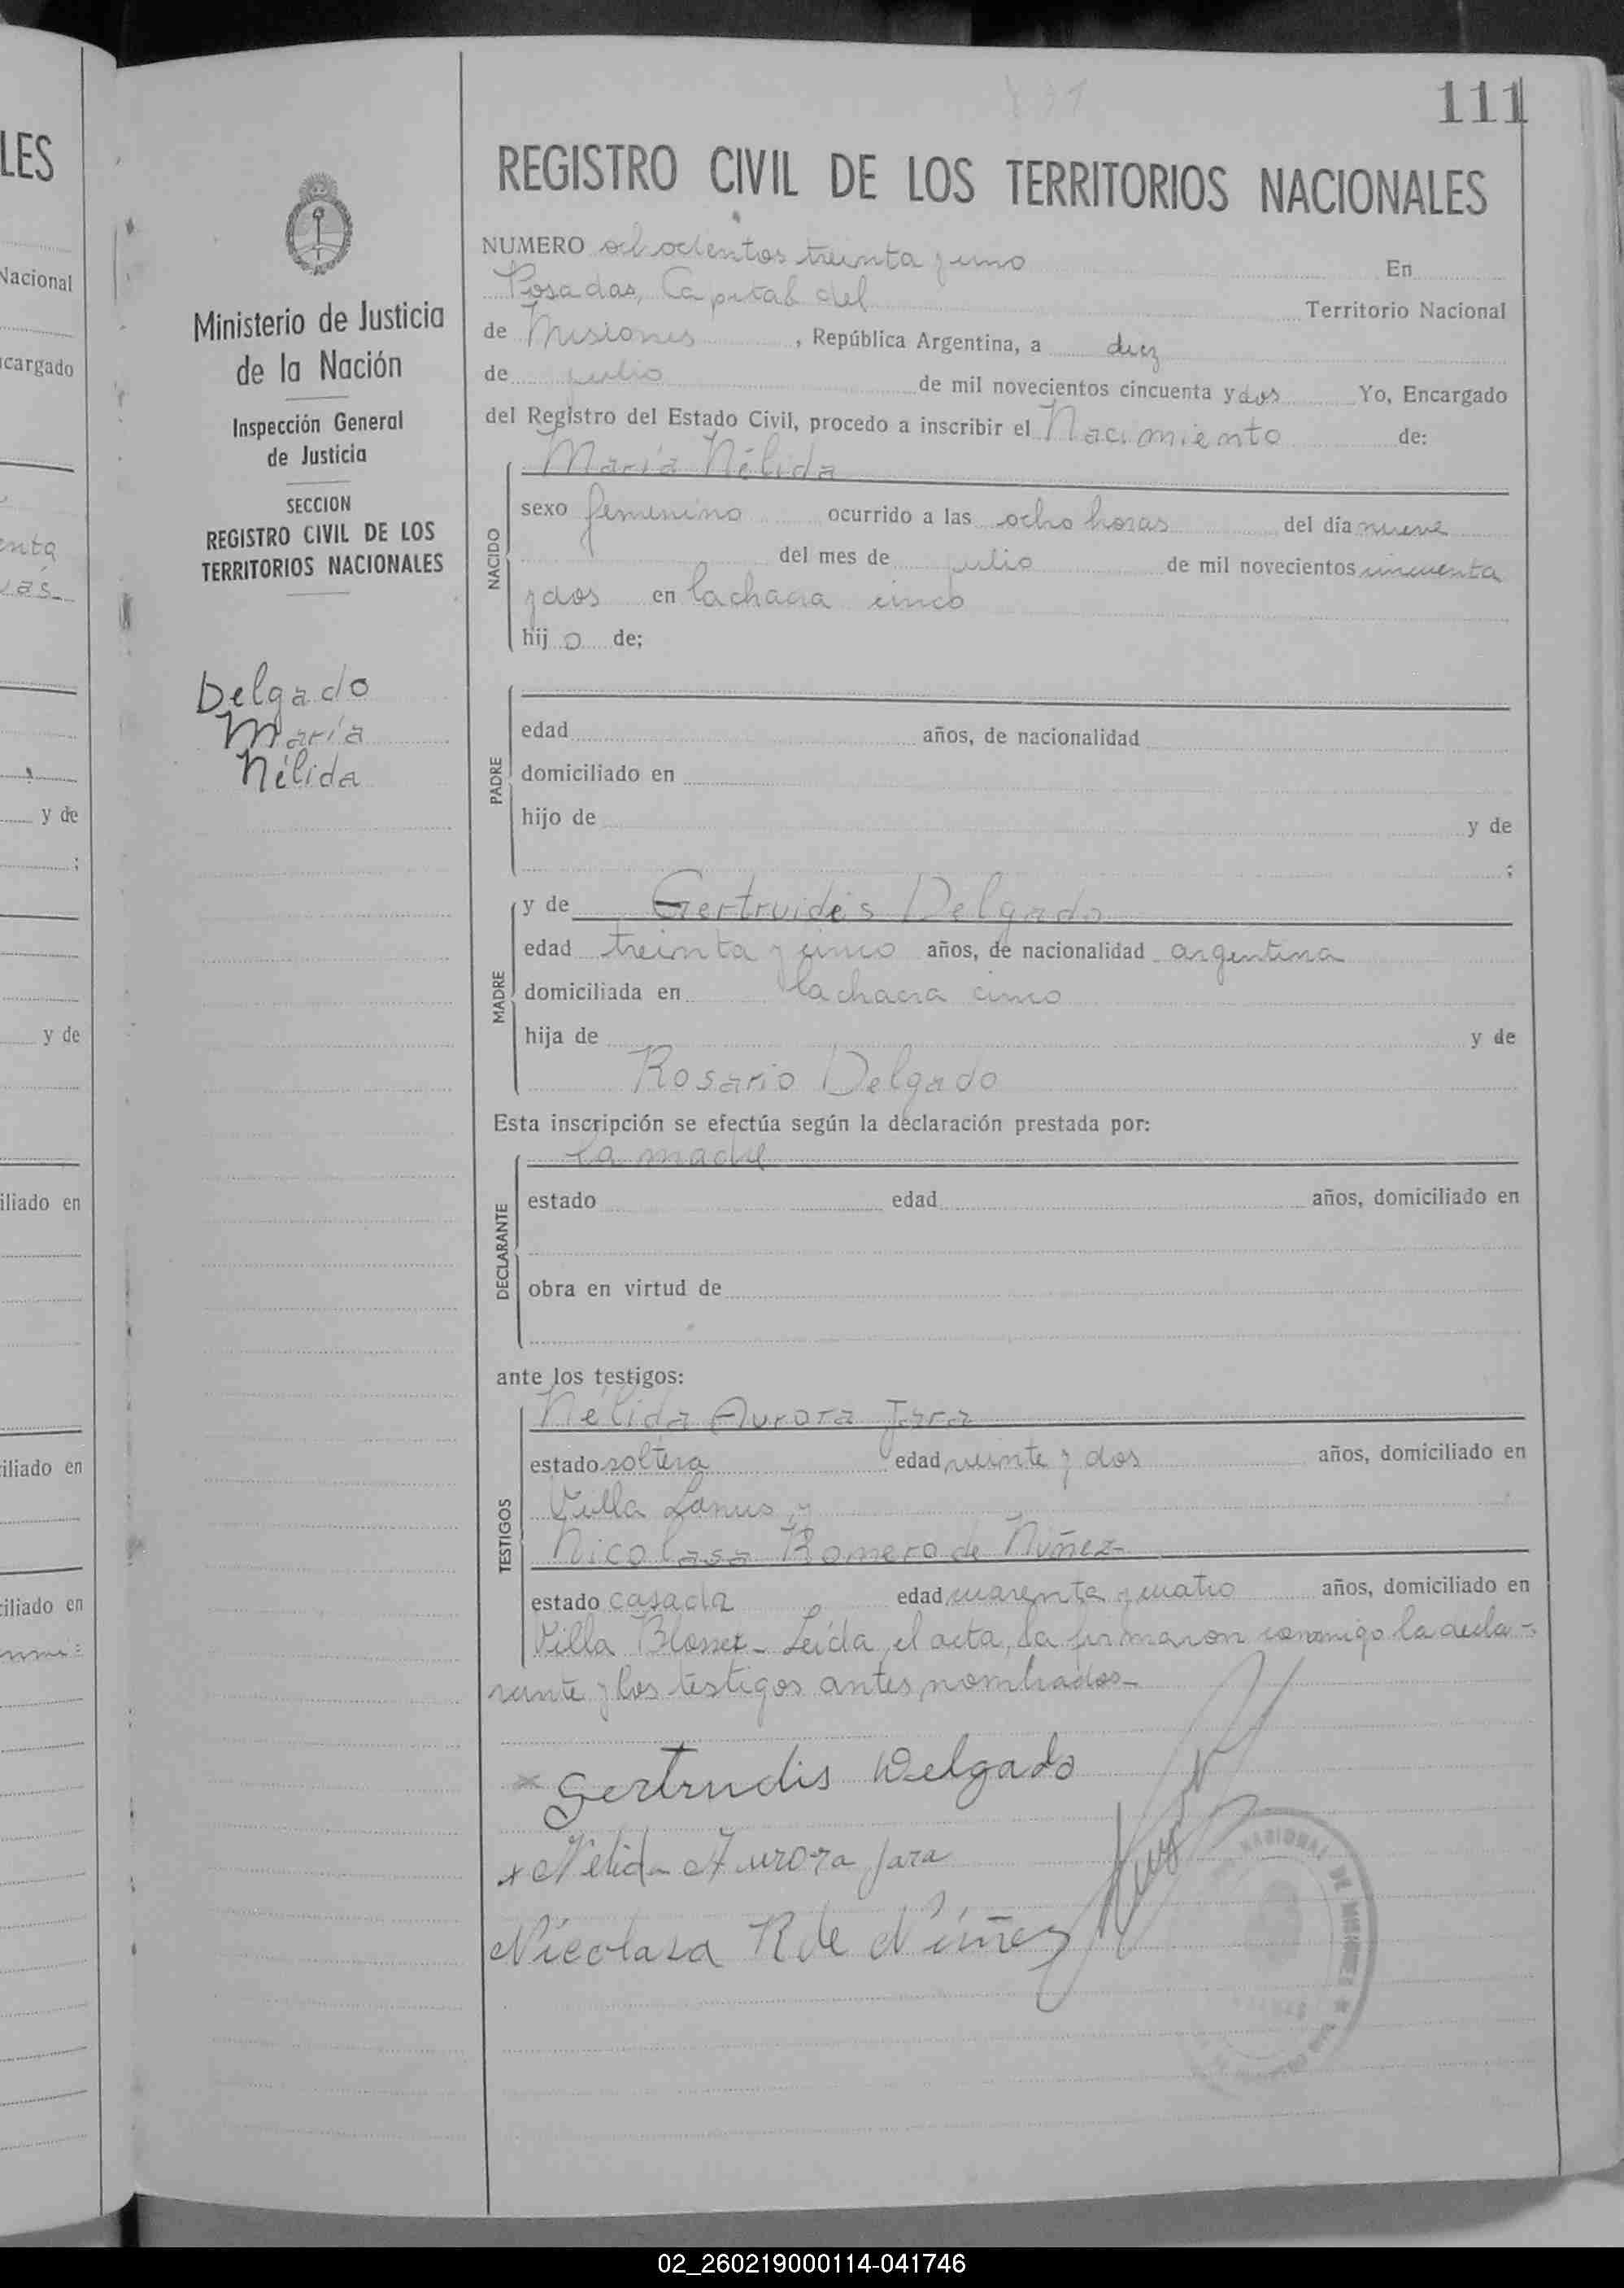 LES
Nacional
cargado
enta
y de
;
y de
iliado en
iliado en
iliado en
111
REGISTRO CIVIL DE LOS TERRITORIOS NACIONALES
Ministerio de Justicia
de la Nación
Inspección General
de Justicia
SECCION
REGISTRO CIVIL DE LOS
TERRITORIOS NACIONALES
Delgado
María
Nélida
NUMERO ochocientos treinta y uno En
Posadas, Capital del Territorio Nacional
de Misiones, República Argentina, a diez
de julio de mil novecientos cincuenta y dos Yo, Encargado
del Registro del Estado Civil, procedo a inscribir el Nacimiento de:
NACIDO
María Nélida
sexo femenino ocurrido a las ocho horas del día nueve
del mes de julio de mil novecientos cincuenta
y dos en la chacra cinco
hij o de;
PADRE
edad años, de nacionalidad
domiciliado en
hijo de y de
;
MADRE
y de Gertruides Delgado
edad treinta y cinco años, de nacionalidad argentina
domiciliada en la chacra cinco
hija de y de
Rosario Delgado
Esta inscripción se efectúa según la declaración prestada por:
DECLARANTE
la madre
estado edad años, domiciliado en
obra en virtud de
ante los testigos:
TESTIGOS
Nélida Aurora Jara
estado soltera edad veinte y dos años, domiciliado en
Villa Lanus, y
Nicolasa Romero de Núñez
estado casada edad cuarenta y cuatro años, domiciliado en
Villa Blosset - Leída el acta, la firmaron conmigo la decla-
rante y los testigos antes nombrados-
x Gertrudis Delgado
x Nelida Aurora Jara
Nicolasa R de Núñez
NACIONAL DE MISIONES
02_260219000114-041746